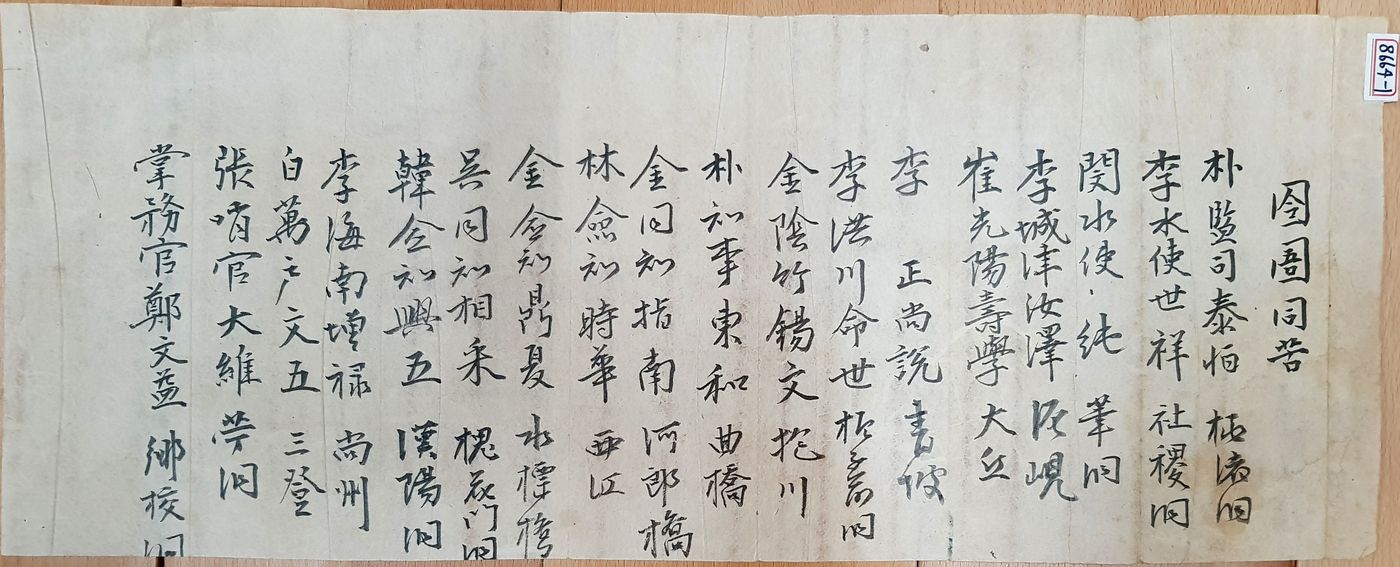 囹圄同苦
朴監司泰怕
李水使世祥 社稷洞
閔水使純 筆洞
李城津汝澤 泥峴
崔光陽壽學 大丘
李 正尚說 書
李洪川命世 洞
金陰竹錫文 抱川
朴知事東和 曲橋
金同知指南 河郎橋
林僉知時華 西江
金僉知鼎夏 水標橋
吳同知相采 槐花門洞
韓僉知興五 漢陽洞
李海南增祿 尚州
白萬戶文五 三登
張哨官大維 洞
掌務官鄭文益 鄉校洞
8664-1